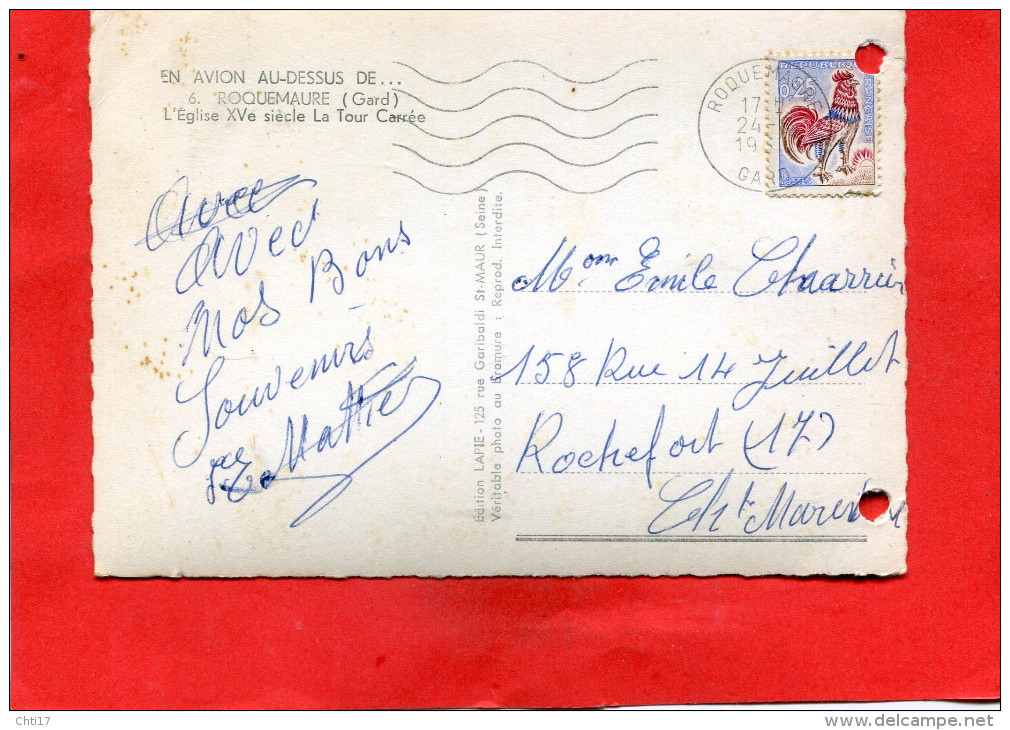 EN AVION AU-DESSUS DE...
6. ROQUEMAURE (Gard)
L'Église XVe siècle La Tour Carrée
ROQUEMAURE
17 H
24
19
GARD
RÉPUBLIQUE FRANÇAISE
0,25
Avec
Avec
Nos Bons
Souvenirs
Mathé
Édition LAPIE - 125 rue Garibaldi St-MAUR (Seine)
Véritable photo au Bromure : Reprod. Interdite.
Mme Emile
158 Rue 14 Juillet
Rochefort (17)
Cht
Chti17
delcampe.net